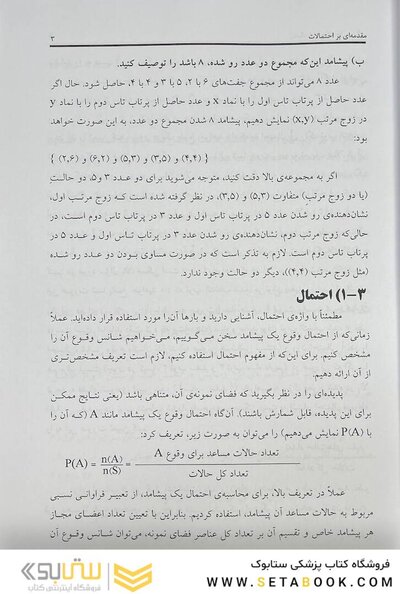 مقدمه‌ای بر احتمالات ۳
ب) پیشامد این‌که مجموع دو عدد رو شده، ۸ باشد را توصیف کنید.
عدد ۸ می‌تواند از مجموع جفت‌های ۶ با ۲، ۵ با ۳ و ۴ با ۴، حاصل شود. حال اگر
عدد حاصل از پرتاب تاس اول را با نماد x و عدد حاصل از پرتاب تاس دوم را با نماد y
در زوج مرتب (x,y) نمایش دهیم، پیشامد ۸ شدن مجموع دو عدد، به این صورت خواهد
بود:
{ (۲,۶) و (۶,۲) و (۵,۳) و (۳,۵) و (۴,۴) }
اگر به مجموعه‌ی بالا دقت کنید، متوجه می‌شوید برای دو عدد ۳ و ۵، دو حالت
(یا دو زوج مرتب) متفاوت (۵,۳) و (۳,۵)، در نظر گرفته شده است که زوج مرتب اول،
نشان‌دهنده‌ی رو شدن عدد ۵ در پرتاب تاس اول و عدد ۳ در پرتاب تاس دوم است، در
حالی‌که زوج مرتب دوم، نشان‌دهنده‌ی رو شدن عدد ۳ در پرتاب تاس اول و عدد ۵ در
پرتاب تاس دوم است. لازم به تذکر است که در صورت مساوی بودن دو عدد رو شده
(مثل زوج مرتب (۴,۴))، دیگر دو حالت وجود ندارد.
۱-۳) احتمال
مطمئناً با واژه‌ی احتمال، آشنایی دارید و بارها آن‌را مورد استفاده قرار داده‌اید. عملاً
زمانی‌که از احتمال وقوع یک پیشامد سخن می‌گوییم، می‌خواهیم شانس وقوع آن را
مشخص کنیم. برای این‌که از مفهوم احتمال استفاده کنیم، لازم است تعریف مشخص‌تری
از آن ارائه دهیم.
پدیده‌ای را در نظر بگیرید که فضای نمونه‌ی آن، متناهی باشد (یعنی نتایج ممکن
برای این پدیده، قابل شمارش باشند). آن‌گاه احتمال وقوع یک پیشامد مانند A (که آن را
با P(A) نمایش می‌دهیم) را می‌توان به صورت زیر، تعریف کرد:
P(A) = n(A) / n(S) = تعداد حالات مساعد برای وقوع A / تعداد کل حالات
عملاً در تعریف بالا، برای محاسبه‌ی احتمال یک پیشامد، از تعبیر فراوانی نسبی
مربوط به حالات مساعد آن پیشامد، استفاده کردیم. بنابراین با تعیین تعداد اعضای مجاز
هر پیشامد خاص و تقسیم آن بر تعداد کل عناصر فضای نمونه، می‌توان شانس وقوع آن
ستابوک
فروشگاه اینترنتی کتاب
فروشگاه کتاب پزشکی ستابوک
WWW.SETABOOK.COM